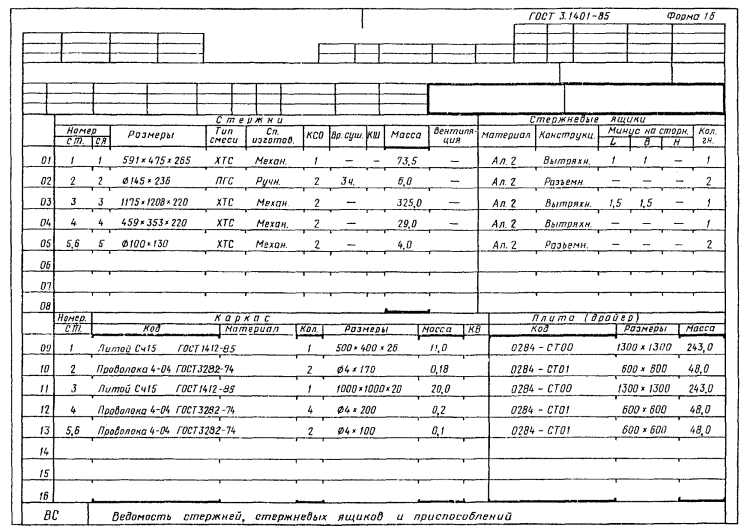 ГОСТ 3.1401-85 Форма 1б
Стержни Стержневые ящики
Номер Размеры Тип смеси Сп. изготов. КСО Вр. суш. КШ Масса Вентиляция Материал Конструкц. Минус на сторн. Кол. гн.
СТ. СЯ L В Н
01 1 1 591×475×265 ХТС Механ. 1 — — 73,5 — Ал. 2 Вытряхн. 1 1 — 1
02 2 2 Ø145×236 ПГС Ручн. 2 3ч. — 6,0 — Ал. 2 Разъемн. — — — 2
03 3 3 1175×1208×220 ХТС Механ. 2 — — 325,0 — Ал. 2 Вытряхн. 1,5 1,5 — 1
04 4 4 459×353×220 ХТС Механ. 2 — — 29,0 — Ал. 2 Вытряхн. — — — 1
05 5,6 5 Ø100×130 ХТС Механ. 2 — — 4,0 — Ал. 2 Разъемн. — — — 2
06
07
08
Номер. Каркас Плита (драйер)
СТ. Код Материал Кол. Размеры Масса КВ Код Размеры Масса
09 1 Литой Сч15 ГОСТ 1412-85 1 500×400×26 11,0 0284 - СТ00 1300×1300 243,0
10 2 Проволока 4-04 ГОСТ 3282-74 2 Ø4×170 0,18 0284 - СТ01 600×600 48,0
11 3 Литой Сч15 ГОСТ 1412-85 1 1000×1000×20 20,0 0284 - СТ00 1300×1300 243,0
12 4 Проволока 4-04 ГОСТ 3282-74 4 Ø4×200 0,2 0284 - СТ01 600×600 48,0
13 5,6 Проволока 4-04 ГОСТ 3282-74 2 Ø4×100 0,1 0284 - СТ01 600×600 48,0
14
15
16
ВС Ведомость стержней, стержневых ящиков и приспособлений